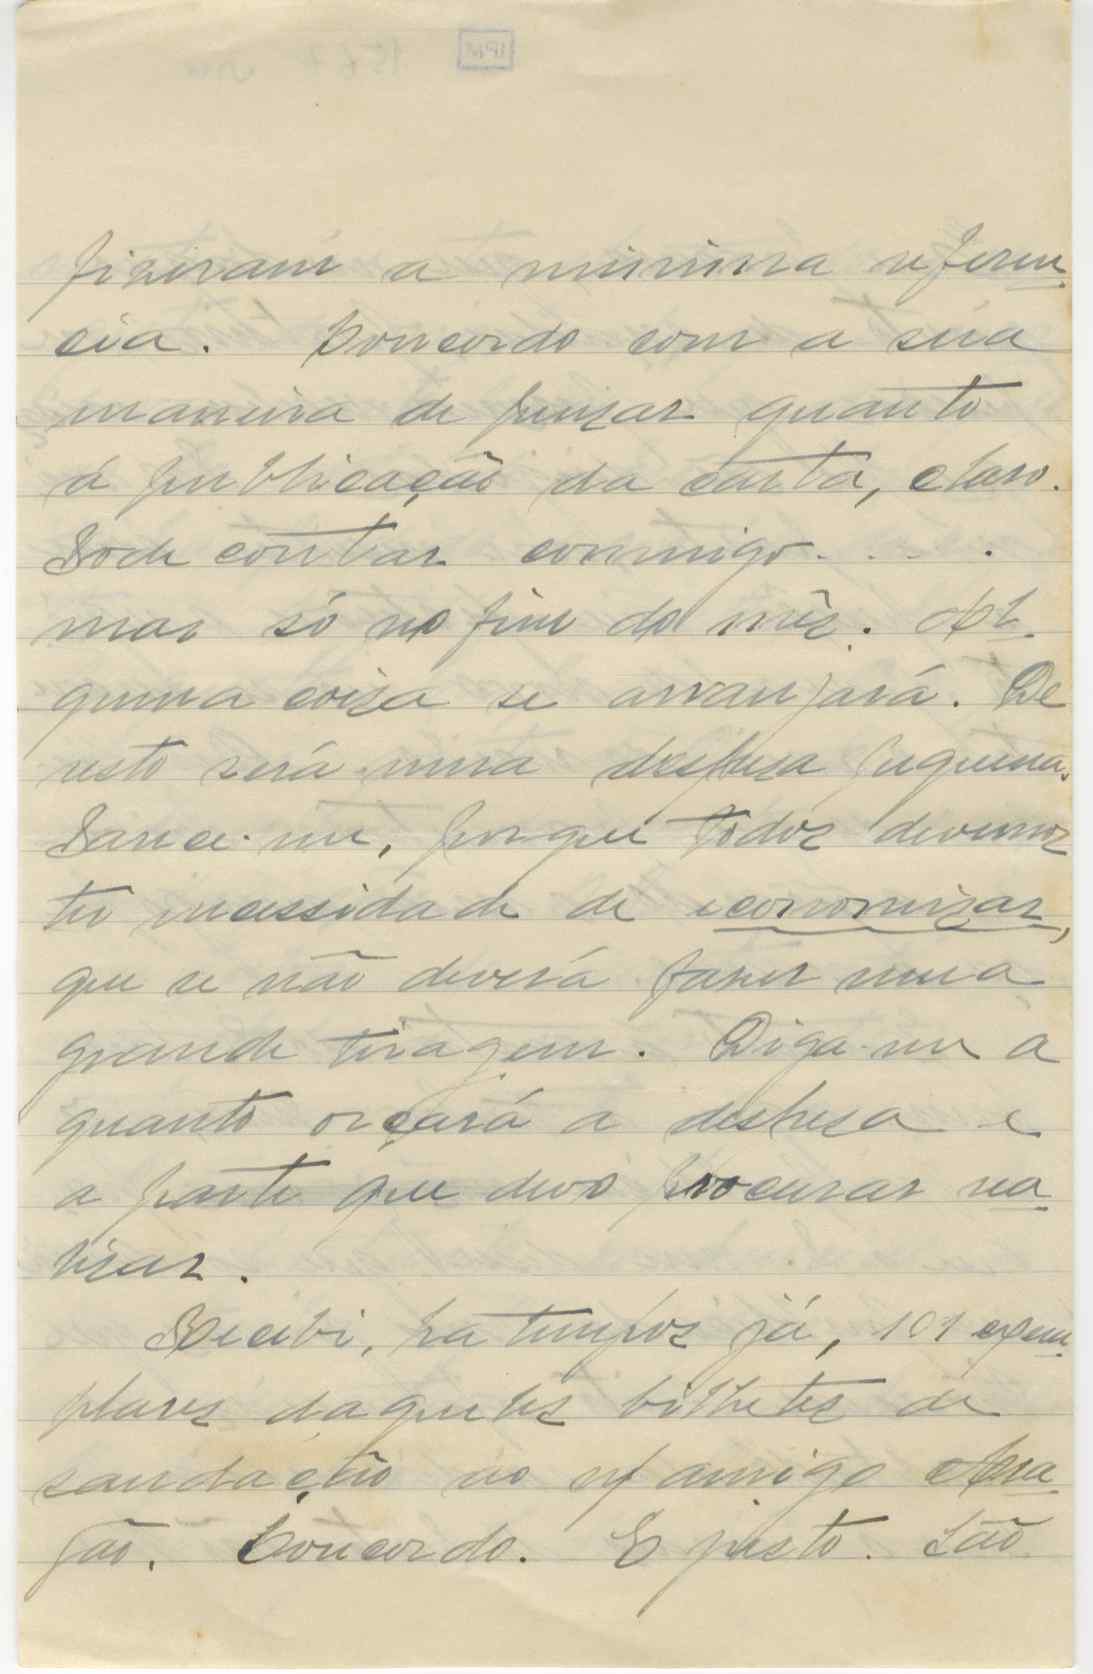 fizeram a minima referen
cia. Concordo com a sua
maneira de pensar quanto
á publicação da carta, claro.
Pode contar commigo....
mas só no fim do mês. Al
guma coisa se arranjará. De
resto será uma despesa pequena.
Parece-me, porque todos devemos
ter necessidade de economizar,
que se não deverá fazer uma
grande tiragem. Diga-me a
quanto orçará a despesa e
a parte que devo procurar rea
lizar.
Recebi, ha tempos já, 101 exem
plares daqueles bilhetes de
saudação ao amigo Ara
gão. Concordo. E justo. São